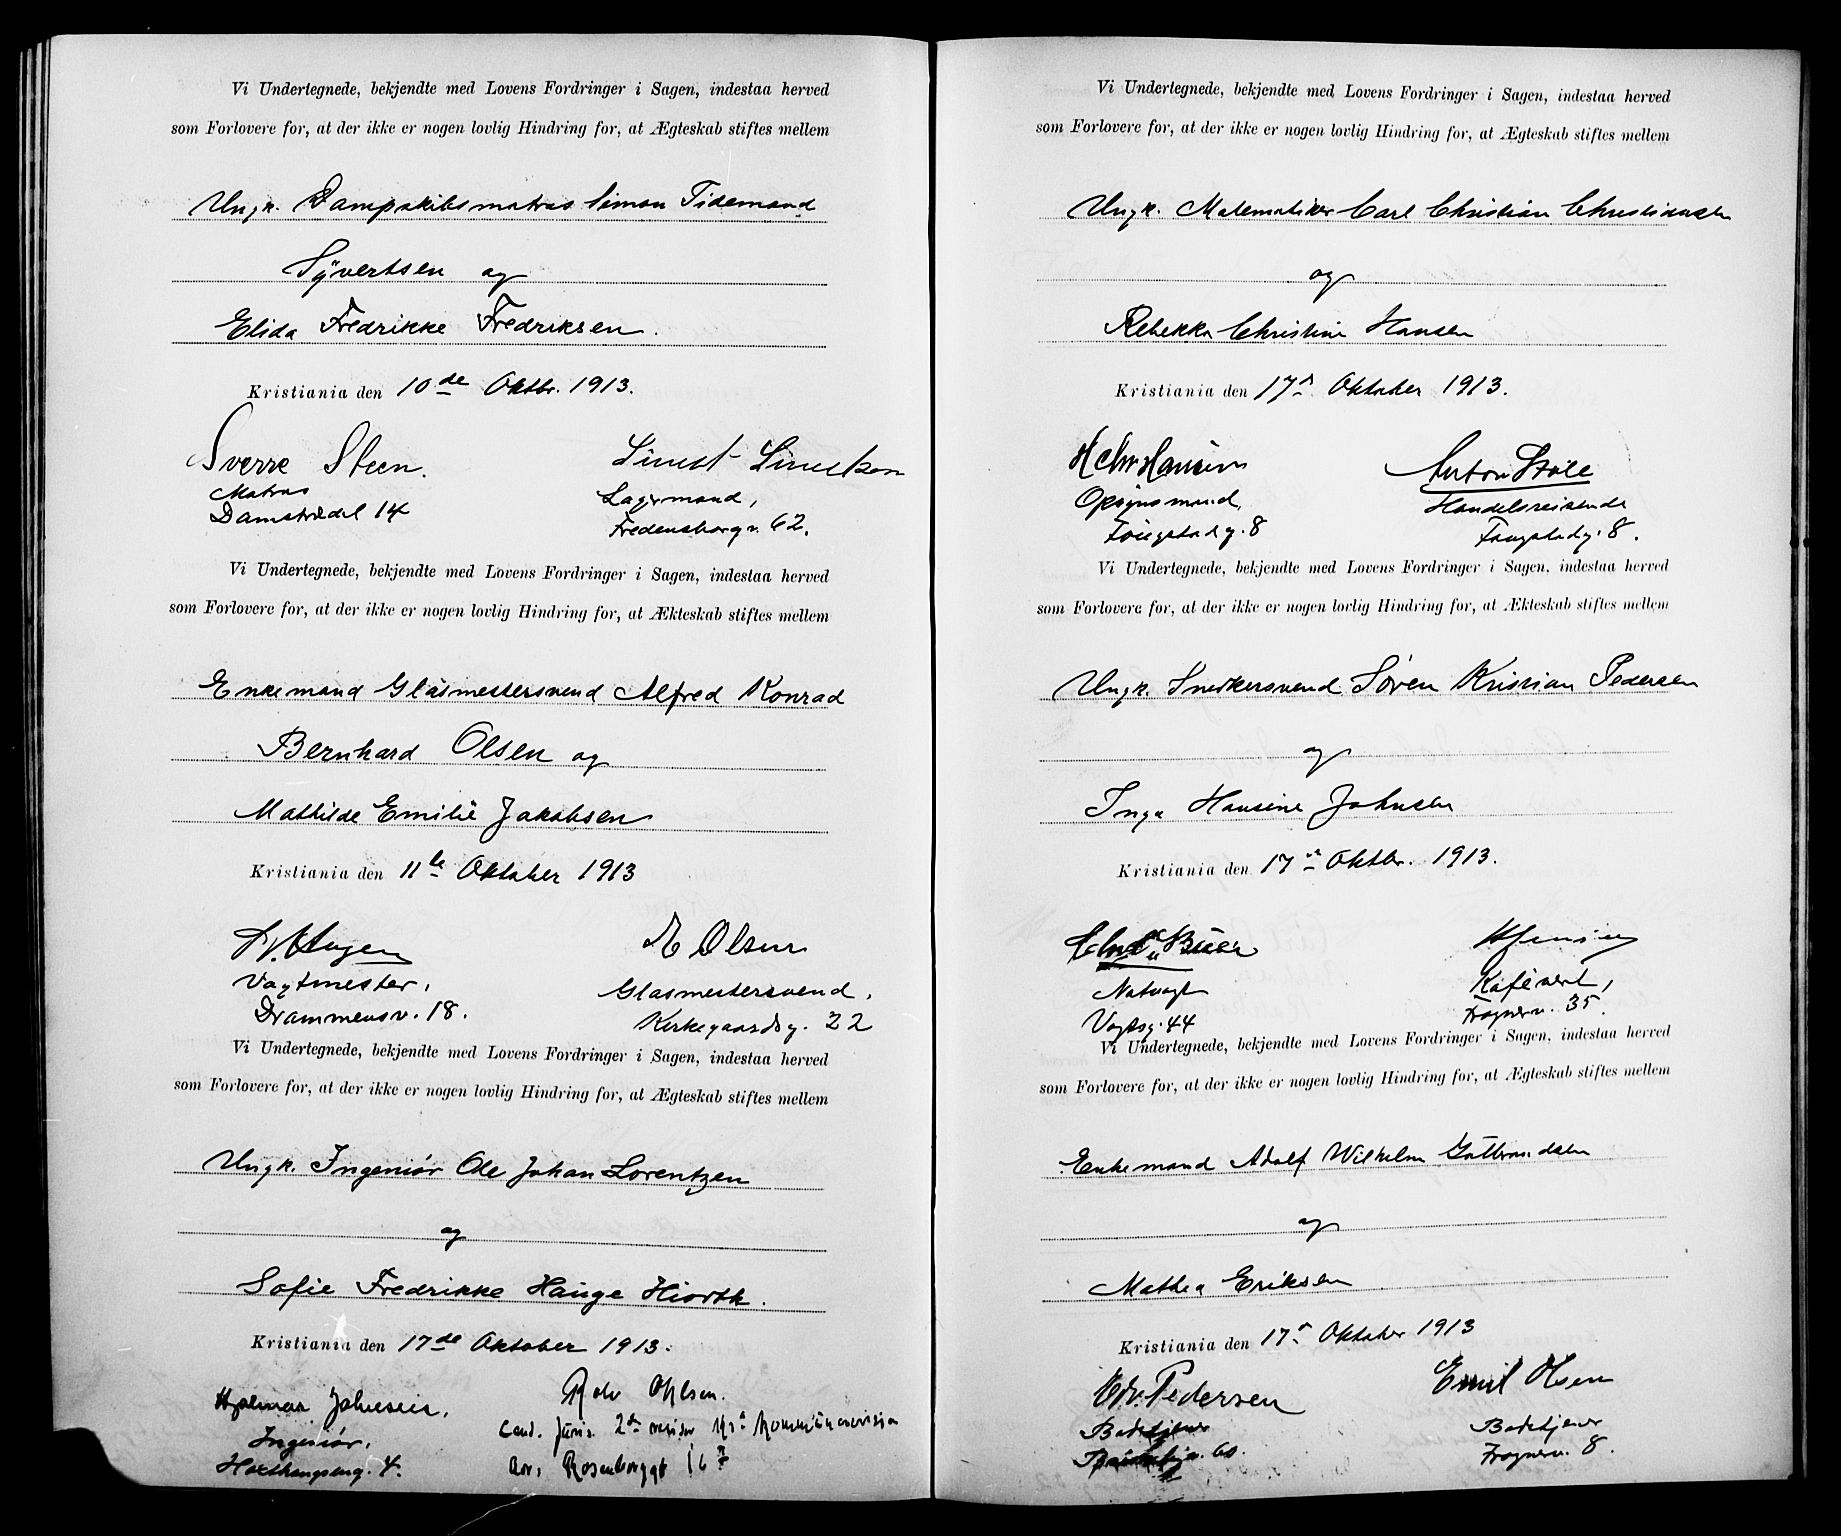 Vi Undertegnede, bekjendte med Lovens Fordringer i Sagen, indestaa herved
som Forlovere for, at der ikke er nogen lovlig Hindring for, at Ægteskab stiftes mellem
Ungk. Dampskibsmatros Simon Tidemand
Syvertsen og
Elida Fredrikke Fredriksen.
Kristiania den 10de Oktbr. 1913.
Sverre Steen.
Matros
Damstrædet 14
Lagermand,
Fredensborgv. 62.
Vi Undertegnede, bekjendte med Lovens Fordringer i Sagen, indestaa herved
som Forlovere for, at der ikke er nogen lovlig Hindring for, at Ækteskab stiftes mellem
Enkemand Glasmestersvend Alfred Konrad
Bernhard Olsen og
Mathilde Emilie Jakobsen
Kristiania den 11te Oktober 1913
Vagtmester,
Drammensv. 18.
E Olsen
Glasmestersvend,
Kirkegaardsg. 22
Vi Undertegnede, bekjendte med Lovens Fordringer i Sagen, indestaa herved
som Forlovere for, at der ikke er nogen lovlig Hindring for, at Ægteskab stiftes mellem
Ungk. Ingeniør Ole Johan Lorentzen
og
Sofie Fredrikke Hauge Hiorth.
Kristiania den 17de Oktober 1913.
Hjalmar Johnsen,
Ingeniør,
4.
Rolv Ohlsen.
Cand. juris. 2den revisor Kra Kommunerevision
Adr: Rosenborggt 16 I
Vi Undertegnede, bekjendte med Lovens Fordringer i Sagen, indestaa herved
som Forlovere for, at der ikke er nogen lovlig Hindring for, at Ægteskab stiftes mellem
Ungk. Matematiker Carl Christian Christiansen
og
Rebekka Christine Hansen
Kristiania den 17de Oktober 1913.
H Chr Hansen
Opsynsmand,
Tøiegstadg. 8
Anton Støle
Handelsreisende
8.
Vi Undertegnede, bekjendte med Lovens Fordringer i Sagen, indestaa herved
som Forlovere for, at der ikke er nogen lovlig Hindring for, at Ækteskab stiftes mellem
Ungk. Snedkersvend Søren Kristian Pedersen
og
Inga Hansine Johnsen
Kristiania den 17de Oktbr. 1913.
Natvagt
Vogtsg. 44
H Jensen
Kafévert,
Frognerv. 35.
Vi Undertegnede, bekjendte med Lovens Fordringer i Sagen, indestaa herved
som Forlovere for, at der ikke er nogen lovlig Hindring for, at Ægteskab stiftes mellem
Enkemand Adolf Wilhelm Gulbrandsen
og
Mathea Eriksen
Kristiania den 17de Oktober 1913
Edv. Pedersen
Badetjener
60.
Emil Olsen
Badetjener
Frognerv. 8.